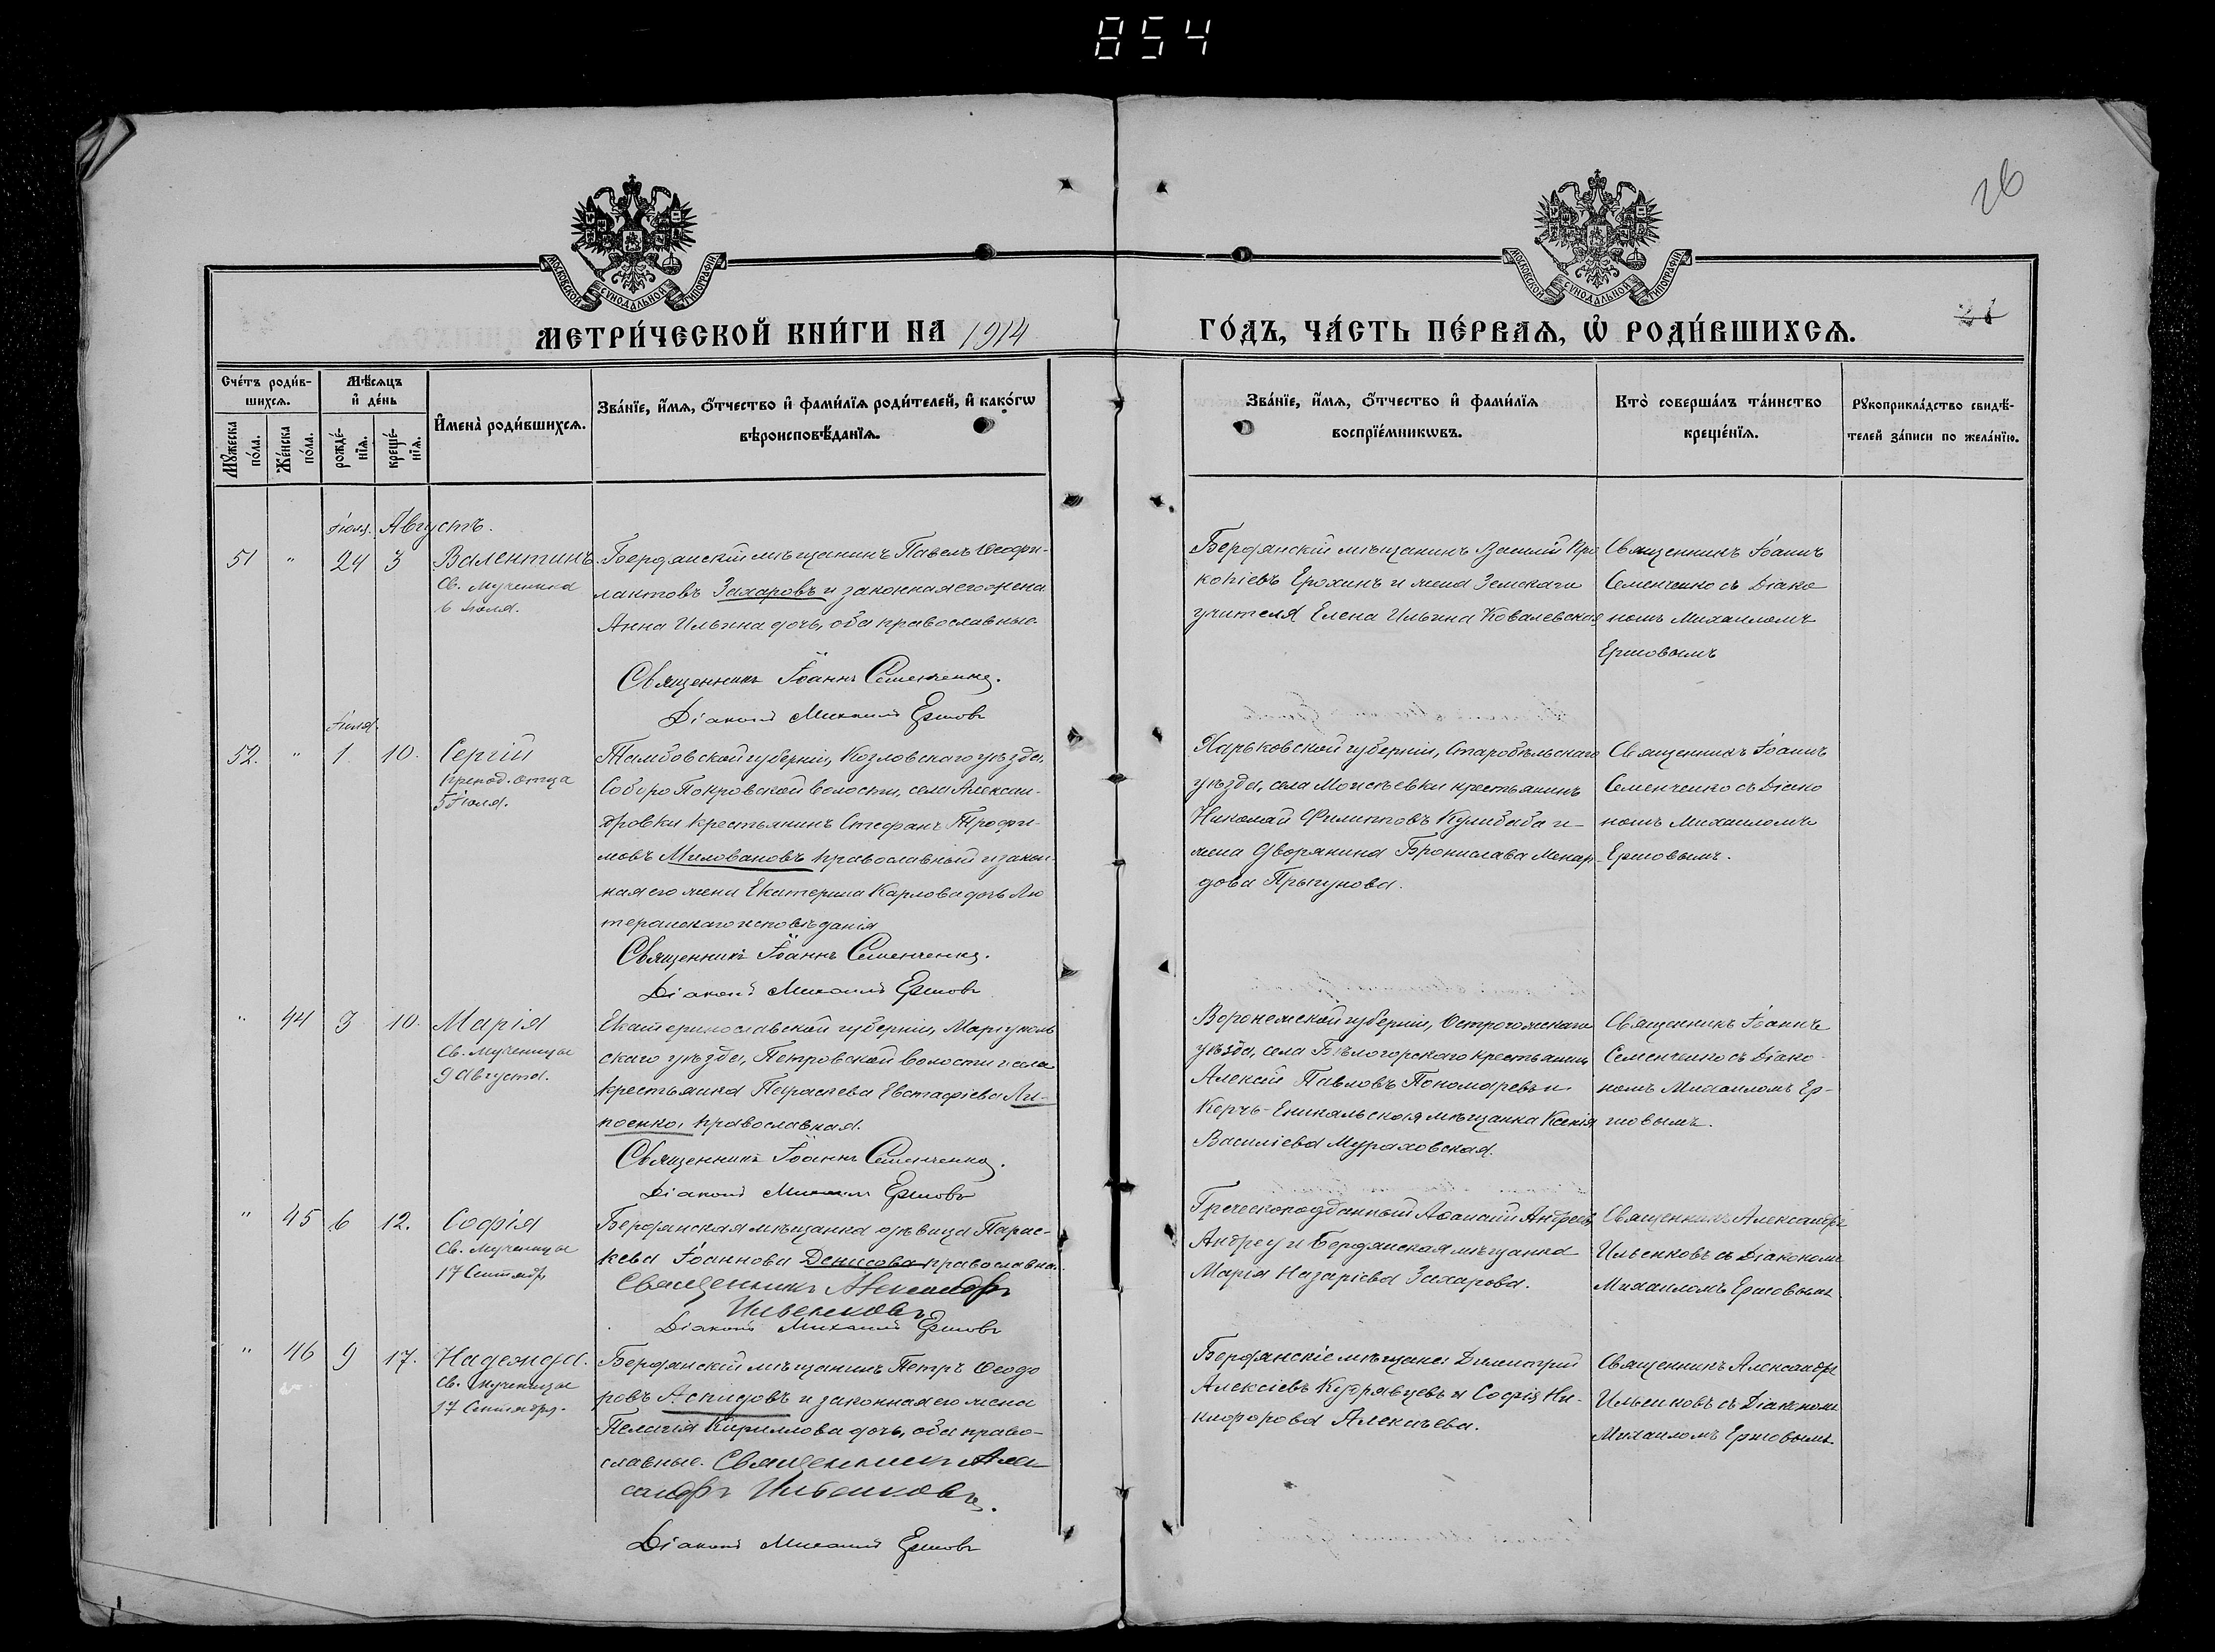 854
26
МОСКОВСКОЙ СУНОДАЛЬНОЙ ТИПОГРАФІИ
МОСКОВСКОЙ СУНОДАЛЬНОЙ ТИПОГРАФІИ
МЕТРИ́ЧЕСКОЙ КНИ́ГИ НА 1914
ГО́ДЪ, ЧА́СТЬ ПЕ́РВАѦ, Ѡ҆ РОДИ́ВШИХСѦ.
Сче́тъ роди́в-
шихсѧ.
Мѣ́сѧцъ
и҆ де́нь
Мꙋ́жеска по́ла.
Же́нска по́ла.
рожде́-
нїѧ.
креще́-
нїѧ.
И҆мена̀ роди́вшихсѧ.
Зва́нїе, и҆́мѧ, ѻ҆́тчество и҆ фами́лїѧ роди́телей, и҆ како́гѡ
вѣроисповѣ́данїѧ.
Зва́нїе, и҆́мѧ, ѻ҆́тчество и҆ фами́лїѧ
воспрїе́мникѡвъ.
Кто̀ соверша́лъ та́инство
креще́нїѧ.
Рꙋкоприкла́дство свидѣ́-
телей за́писи по жела́нїю.
Іюля. Августъ.
51 " 24 3 Валентинъ
Св. Мученика
6 Іюля.
Бердянскій мѣщанинъ Павелъ Ѳеофи-
лактовъ Захаровъ и законная его жена
Анна Ильина дочь, оба православные.
Священникъ Іоаннъ Семенченко.
Діаконъ Михаилъ Ершовъ
Бердянскій мѣщанинъ Василій Про
копіевъ Ерохинъ и жена Земскаго
учителя Елена Ильина Ковалевская
Священникъ Іоаннъ
Семенченко съ Діако
номъ Михаиломъ
Ершовымъ
Іюля.
52. " 1 10. Сергій
препод. отца
5 Іюля.
Тамбовской губерніи, Козловскаго уѣзда,
Соборо Покровской волости, села Алексан-
дровки крестьянинъ Стефанъ Трофи-
мовъ Миловановъ православный и закон-
ная его жена Екатерина Карлова дочь Лю
теранскаго исповѣданія
Священникъ Іоаннъ Семенченко.
Діаконъ Михаилъ Ершовъ
Харьковской губерніи, Старобѣльскаго
уѣзда, села Моисѣевки крестьянинъ
Николай Филипповъ Кулибаба и
жена Дворянина Бронислава Менар-
дова Прыгунова.
Священникъ Іоаннъ
Семенченко съ Діако
номъ Михаиломъ
Ершовымъ.
" 44 3 10. Марія
Св. Мученицы
9 Августа.
Екатеринославской губерніи, Маріуполь
скаго уѣзда, Петровской волости и села
крестьянка Параскева Евстафіева Ли-
поенко, православная.
Священникъ Іоаннъ Семенченко.
Діаконъ Михаилъ Ершовъ
Воронежской губерніи, Острогожскаго
уѣзда, села Бѣлогорскаго крестьянинъ
Алексій Павловъ Пономаревъ и
Керчь-Еникальская мѣщанка Ксенія
Василіева Мураховская.
Священникъ Іоаннъ
Семенченко съ Діако
номъ Михаиломъ Ер-
шовымъ.
" 45 6 12. Софія
Св. Мученицы
17 Сентября
Бердянская мѣщанка дѣвица Парас-
кева Іоаннова Денисова православная.
Священникъ Александръ
Ильенковъ
Діаконъ Михаилъ Ершовъ
Греческоподданный Аѳанасій Андреевъ
Андреу и Бердянская мѣщанка
Марія Назаріева Захарова.
Священникъ Александръ
Ильенковъ съ Діакономъ
Михаиломъ Ершовымъ.
" 46 9 17. Надежда.
Св. Мученицы
17 Сентября.
Бердянскій мѣщанинъ Петръ Ѳеодо
ровъ Аспидовъ и законная его жена
Пелагія Кириллова дочь, оба право-
славные. Священникъ Алек
сандръ Ильенковъ.
Діаконъ Михаилъ Ершовъ
Бердянскіе мѣщане: Димитрій
Алексіевъ Кудрявцевъ и Софія Ни-
кифорова Алексѣева.
Священникъ Александръ
Ильенковъ съ Діакономъ
Михаиломъ Ершовымъ.